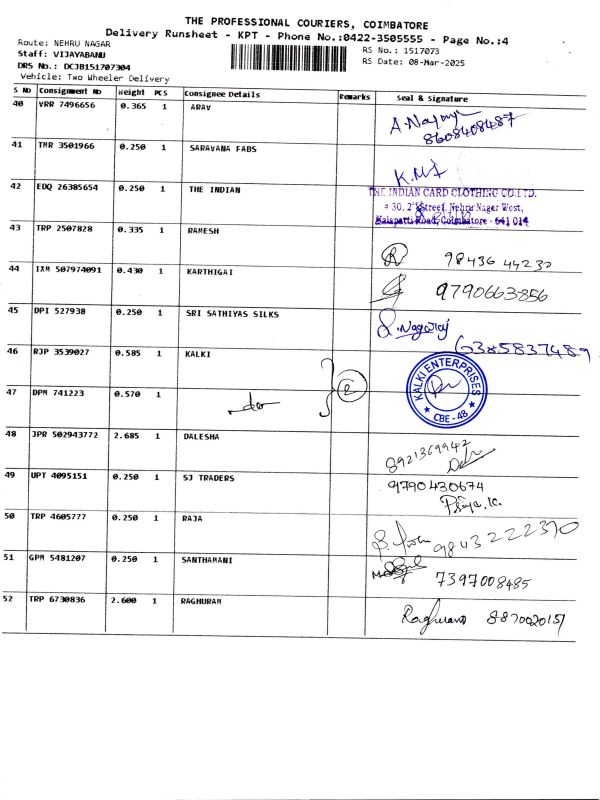 THE PROFESSIONAL COURIERS, COIMBATORE
Delivery Runsheet - KPT - Phone No.:0422-3505555 - Page No.:4
Route: NEHRU NAGAR
Staff: VIJAYABANU
DRS No.: DCJB151707304
Vehicle: Two Wheeler Delivery
RS No.: 1517073
RS Date: 08-Mar-2025
S No Consignment No Weight PCS Consignee Details Remarks Seal & Signature
40 VRR 7496656 0.365 1 ARAV
8608408487
41 TMR 3501966 0.250 1 SARAVANA FABS
42 EDQ 26385654 0.250 1 THE INDIAN
THE INDIAN CARD CLOTHING CO.LTD.
30, 2nd Street, Nehru Nagar West,
Kalapatti Road, Coimbatore - 641 014
43 TRP 2507828 0.335 1 RAMESH
98436 44230
44 IXM 507974091 0.430 1 KARTHIGAI
9790663856
45 DPI 527938 0.250 1 SRI SATHIYAS SILKS
S. Nagaraj
6385837489
46 RJP 3539027 0.585 1 KALKI
KALKI ENTERPRISES
CBE - 48
47 DPM 741223 0.570 1 do
2
48 JPR 502943772 2.685 1 DALESHA
8921369942
49 UPT 4095151 0.250 1 SJ TRADERS
9790430674
Priya.K.
50 TRP 4605777 0.250 1 RAJA
9843222370
51 GPM 5481207 0.250 1 SANTHAMANI
7397008485
52 TRP 6730836 2.600 1 RAGHURAM
Raghuram 887002015